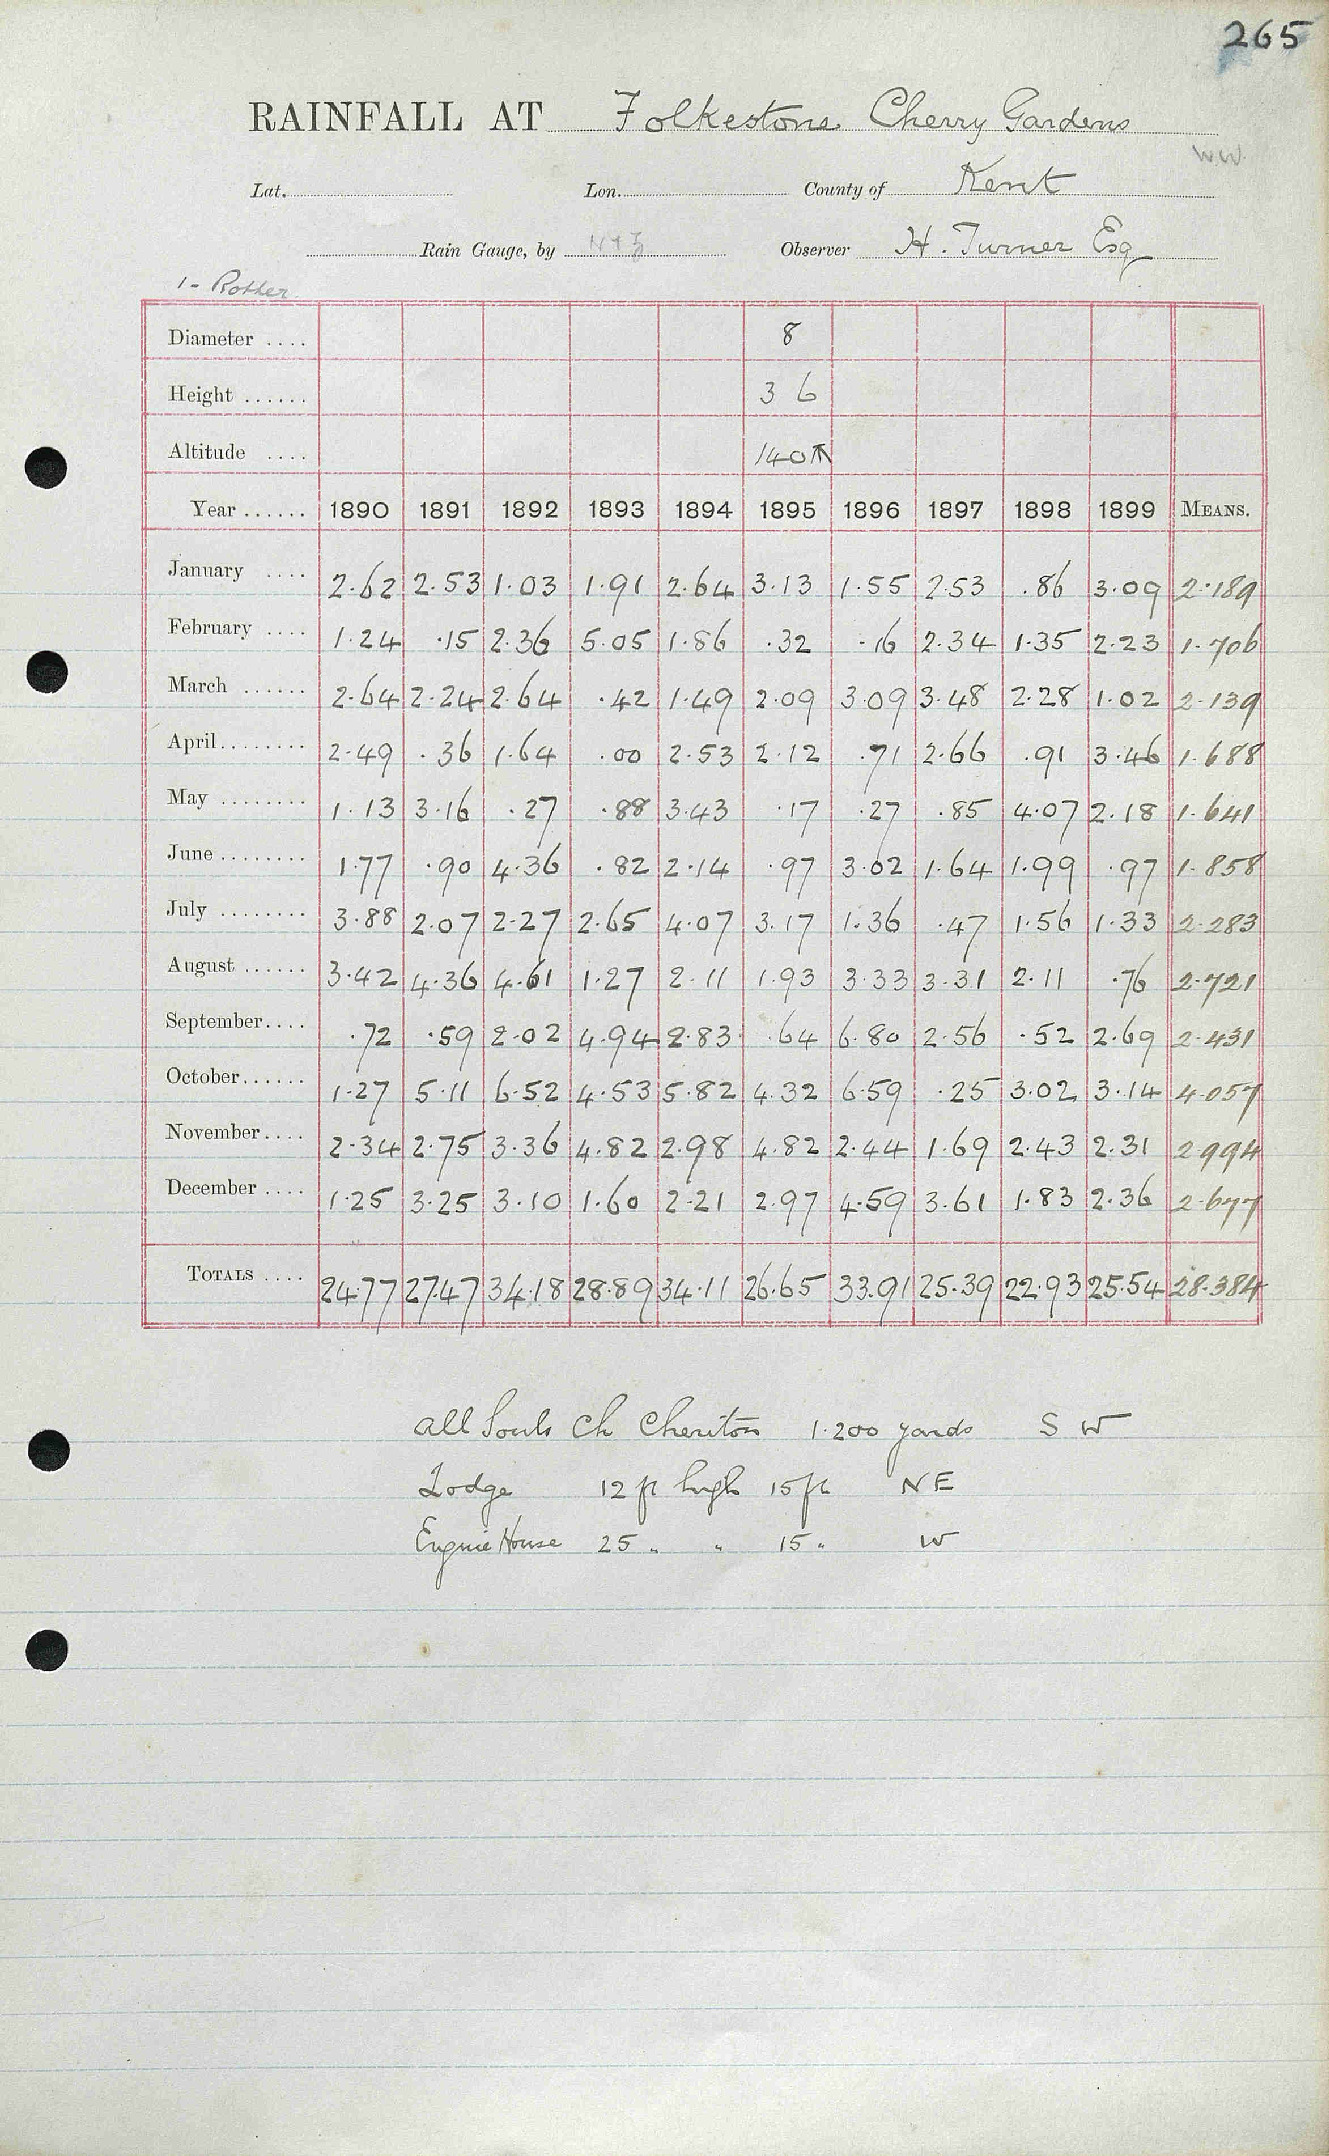 265
RAINFALL AT Folkestone Cherry Gardens
WW.
Lat. Lon. County of Kent
Rain Gauge, by N & Z Observer H. Turner Esq
1 - Rother
Diameter .... 8
Height ...... 3 6
Altitude .... 140
Year ...... 1890 1891 1892 1893 1894 1895 1896 1897 1898 1899 MEANS.
January .... 2.62 2.53 1.03 1.91 2.64 3.13 1.55 2.53 .86 3.09 2.189
February .... 1.24 .15 2.36 5.05 1.86 .32 .16 2.34 1.35 2.23 1.706
March ...... 2.64 2.24 2.64 .42 1.49 2.09 3.09 3.48 2.28 1.02 2.139
April........ 2.49 .36 1.64 .00 2.53 2.12 .71 2.66 .91 3.46 1.688
May ........ 1.13 3.16 .27 .88 3.43 .17 .27 .85 4.07 2.18 1.641
June ........ 1.77 .90 4.36 .82 2.14 .97 3.02 1.64 1.99 .97 1.858
July ........ 3.88 2.07 2.27 2.65 4.07 3.17 1.36 .47 1.56 1.33 2.283
August ...... 3.42 4.36 4.61 1.27 2.11 1.93 3.33 3.31 2.11 .76 2.721
September.... .72 .59 2.02 4.94 2.83 .64 6.80 2.56 .52 2.69 2.431
October...... 1.27 5.11 6.52 4.53 5.82 4.32 6.59 .25 3.02 3.14 4.057
November.... 2.34 2.75 3.36 4.82 2.98 4.82 2.44 1.69 2.43 2.31 2.994
December .... 1.25 3.25 3.10 1.60 2.21 2.97 4.59 3.61 1.83 2.36 2.677
TOTALS .... 24.77 27.47 34.18 28.89 34.11 26.65 33.91 25.39 22.93 25.54 28.384
All Souls Ch Cheriton 1.200 yards S W
Lodge 12 ft high 15 ft NE
Engine House 25 " " 15 " W